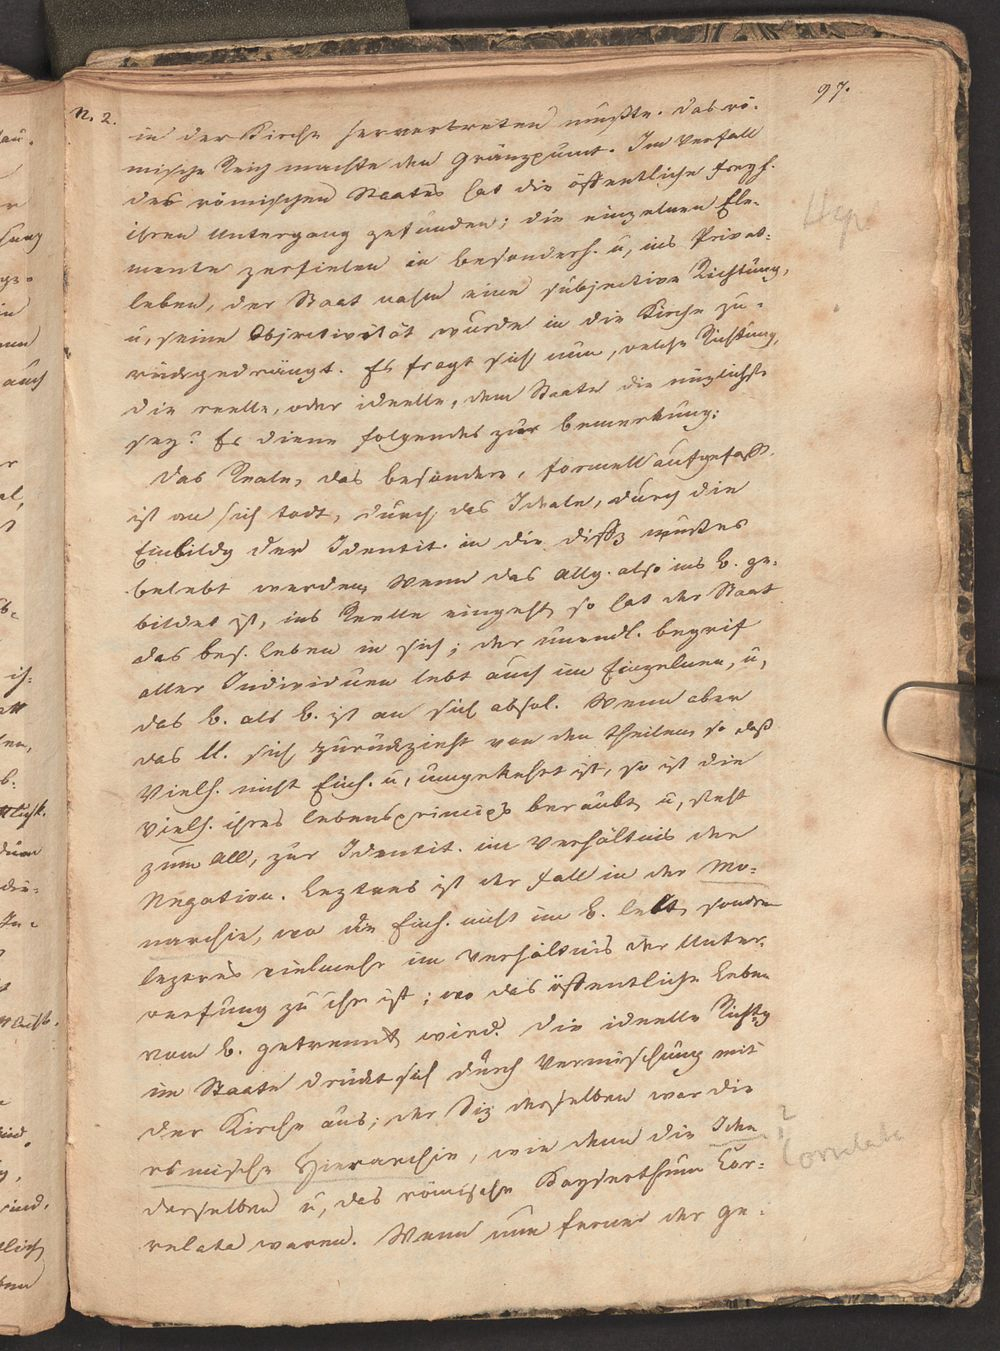 N. 2.
97.
in der Kirche hervortreten mußte. Das rö-
mische Reich machte den Gränzpunct. Im Verfall
des römischen Staates hat die öffentliche Freyh.
ihren Untergang gefunden; die einzelnen Ele-
mente zerfielen in besonderh. u, ins Privat-
leben, der Staat nahm eine subjective Richtung,
u, seine Objectivität wurde in die Kirche zu-
rückgedrängt. Es fragt sich nun, welche Richtung,
die reelle, oder ideelle, dem Staate die nüzlichste
sey? Es diene folgendes zur Bemerkung:
Das Reale, das besondere, formell aufgefaßt
ist an sich todt, durch das Ideale, durch die
Einbildg der Identit. in die Diffz muß es
belebt werden, Wenn das Allg. also ins b. ge-
bildet ist, ins Reelle eingeht, so hat der Staat
das bes. Leben in sich; der unendl. Begrif
aller Individuen lebt auch im Einzelnen, u,
das b. als b. ist an sich absol. Wenn aber
das All. sich zurückzieht von den Theilen, so daß
Vielh. nicht Einh. u, umgekehrt ist, so ist die
Vielh. ihres Lebensprincips beraubt, u, steht
zum All, zur Identit. im Verhältnis der
Negation. Leztres ist der Fall in der Mo-
narchie, wo die Einh. nicht im b. lebt, sondern
leztres vielmehr im Verhältnis der Unter-
werfung zu ihr ist; wo das öffentliche Leben
vom b. getrennt wird. Die ideelle Richtg
im Staate drückt sich durch Vermischung mit
der Kirche aus; der Siz derselben war die
römische Hierarchie, wie denn die Idee
derselben u, das römische Kayserthum Cor-
relata waren. Wenn nun ferner der ge-
?
Correlata